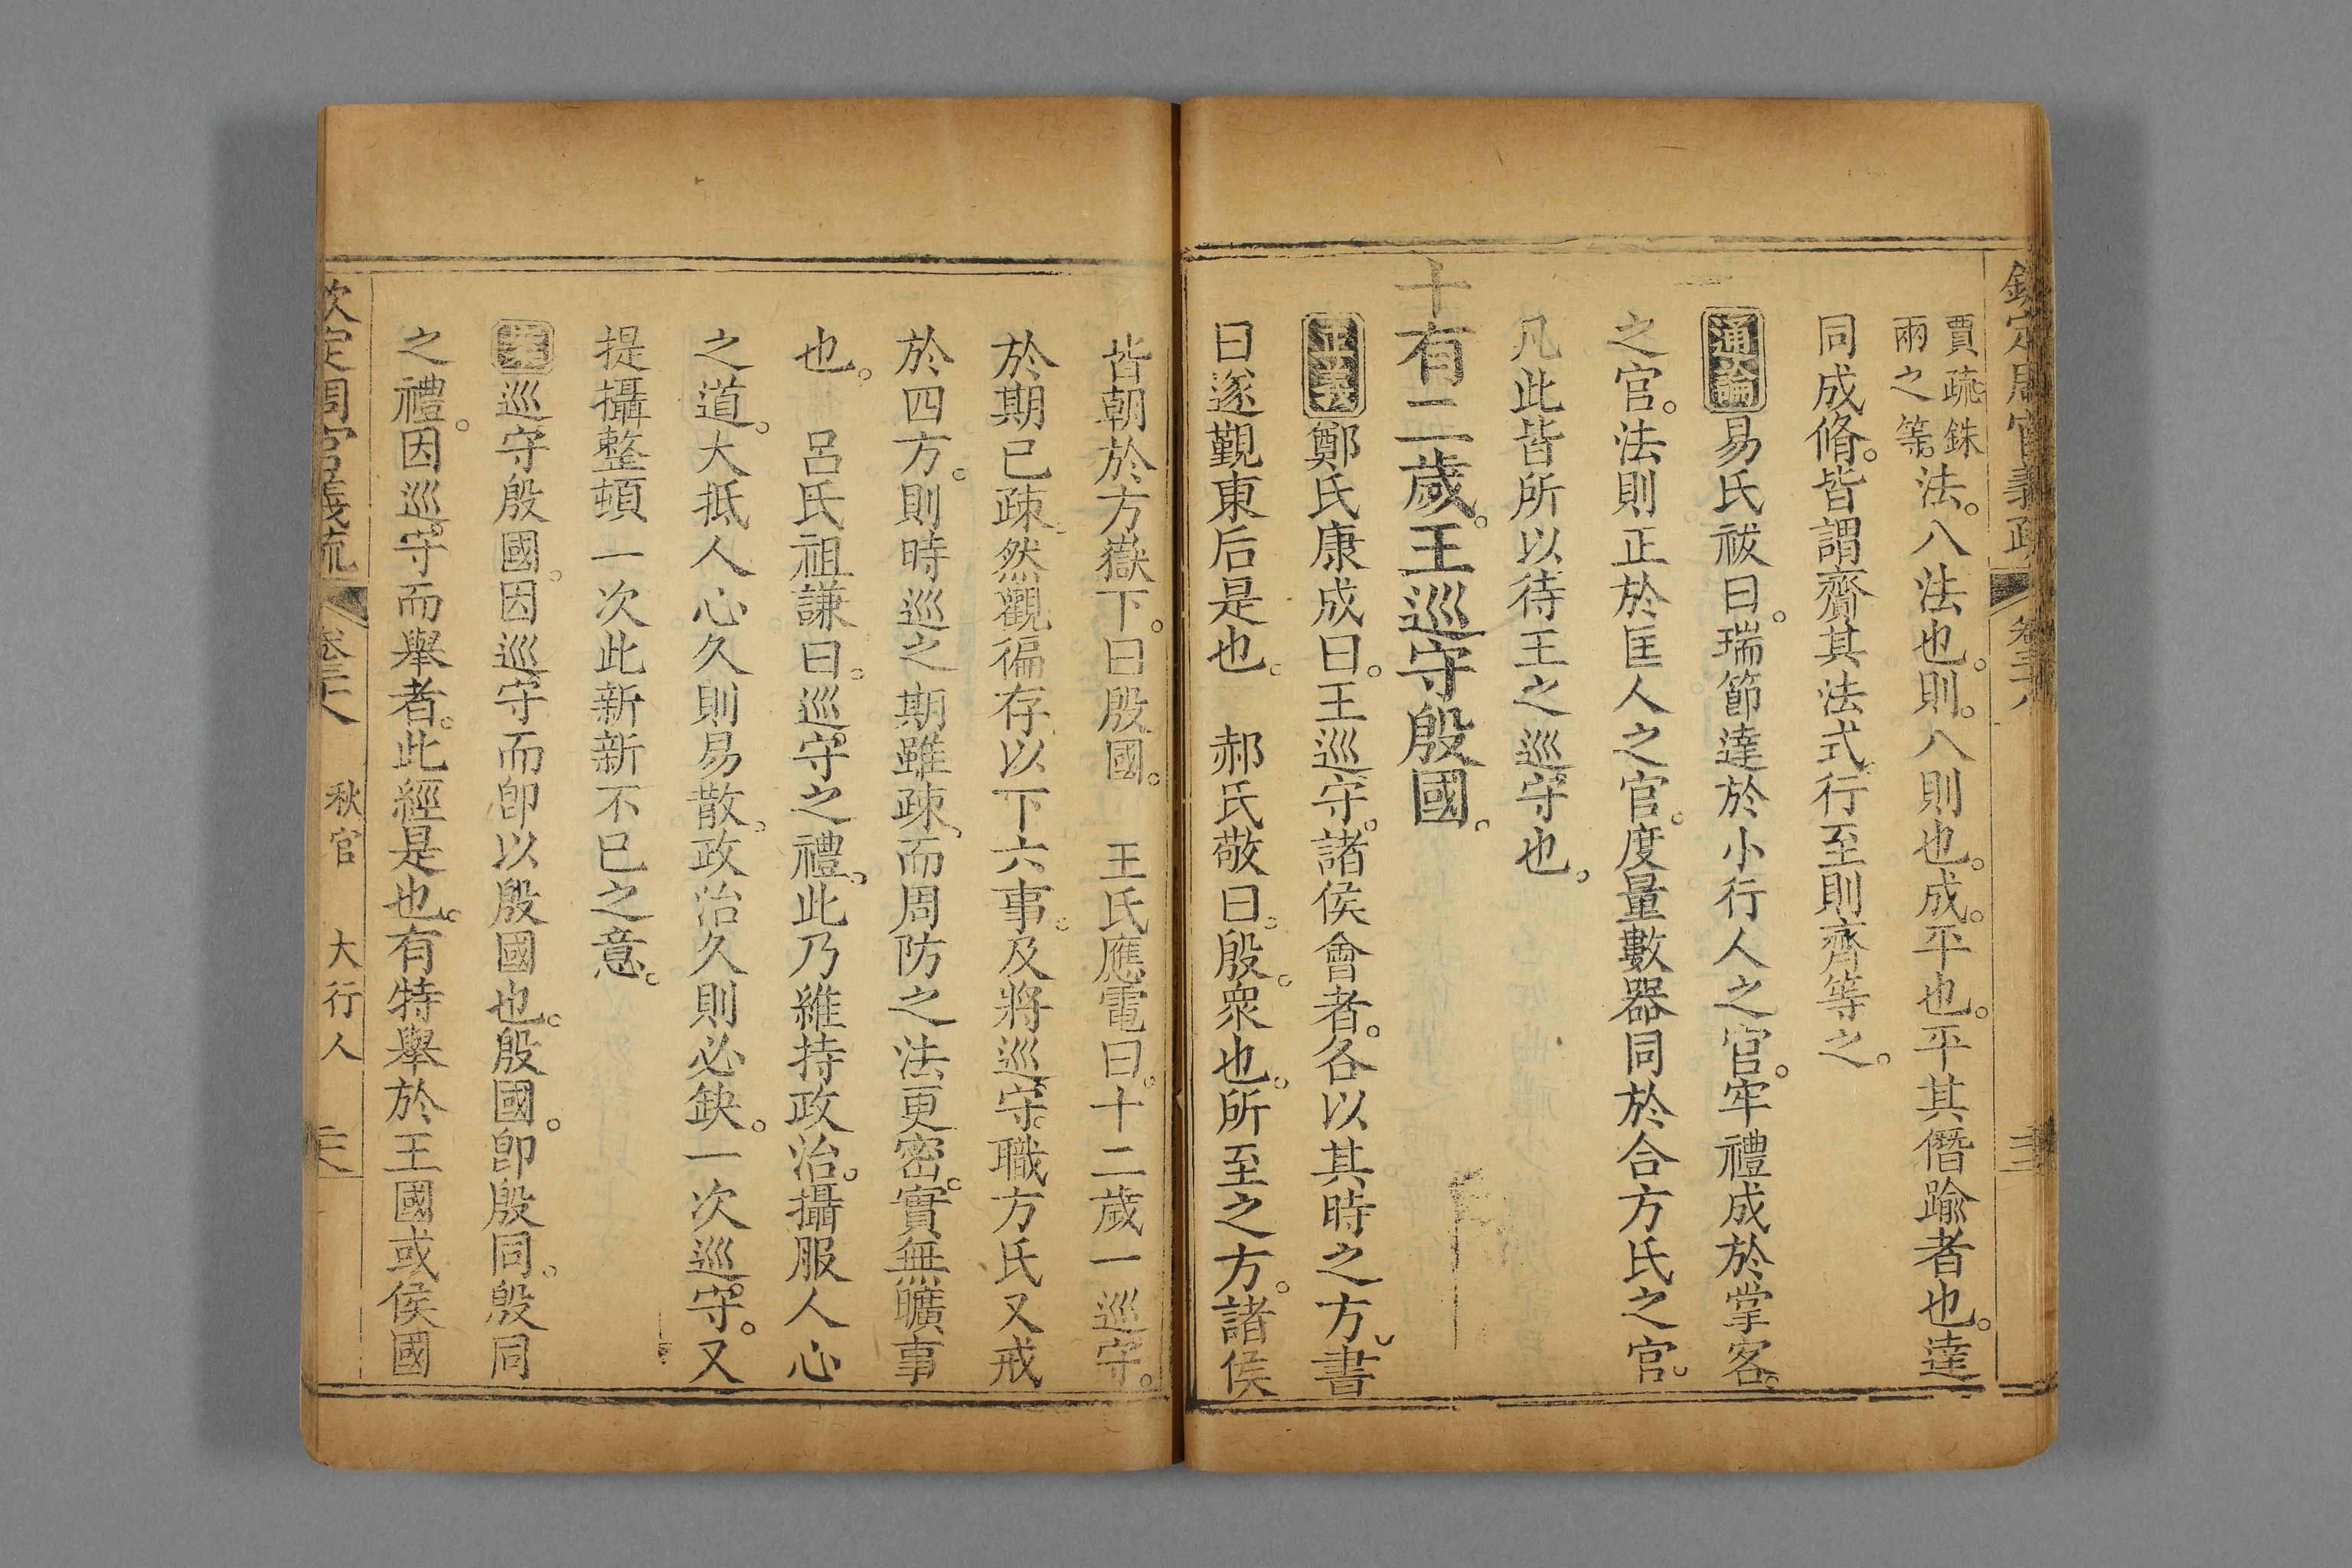 欽定周官義疏 卷三十八
賈疏銖
兩之等。
法。八法也。則。八則也。成。平也。平其僭踰者也。達
同成脩。皆謂齎其法式。行至則齊等之。
通論易氏祓曰。瑞節達於小行人之官。牢禮成於掌客。
之官。法則正於匡人之官。度量數器同於合方氏之官。
凡此皆所以待王之巡守也。
十有二歲。王巡守殷國。
正義鄭氏康成曰。王巡守。諸侯會者。各以其時之方。書
曰遂覲東后是也。 郝氏敬曰。殷。衆也。所至之方。諸侯
皆朝於方嶽下。曰殷國。 王氏應電曰。十二歲一巡守。
於期已疎。然觀徧存以下六事。及將巡守。職方氏又戒
於四方。則時巡之期雖疎。而周防之法更密。實無曠事
也。 呂氏祖謙曰。巡守之禮。此乃維持政治。攝服人心
之道。大抵人心久則易散。政治久則必缺。一次巡守。又
提攝整頓一次此新新不已之意。
案巡守殷國。因巡守而卽以殷國也。殷國。卽殷同。殷同
之禮。因巡守而舉者。此經是也。有特舉於王國或侯國
欽定周官義疏 卷三十八 秋官 大行人